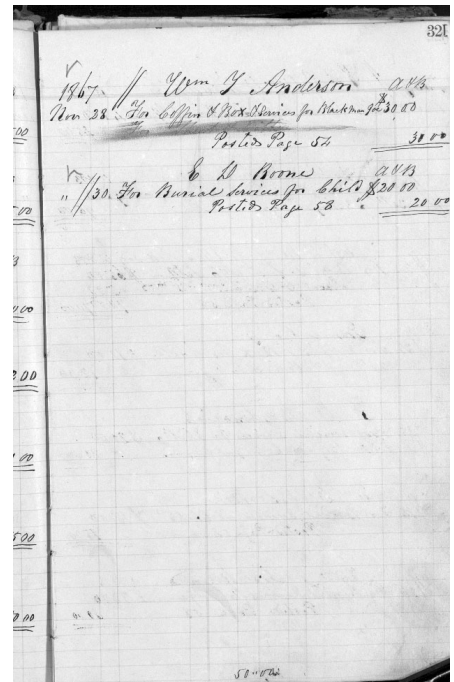 321
1867 // Wm T Anderson A & B
Nov 28 To Coffin & Box & Services for Black man Joe $30 00
For
Posted Page 54 30 00
E D Boone A & B
" // 30 To Burial Services for Child $20 00
Posted Page 58 20 00
50.00